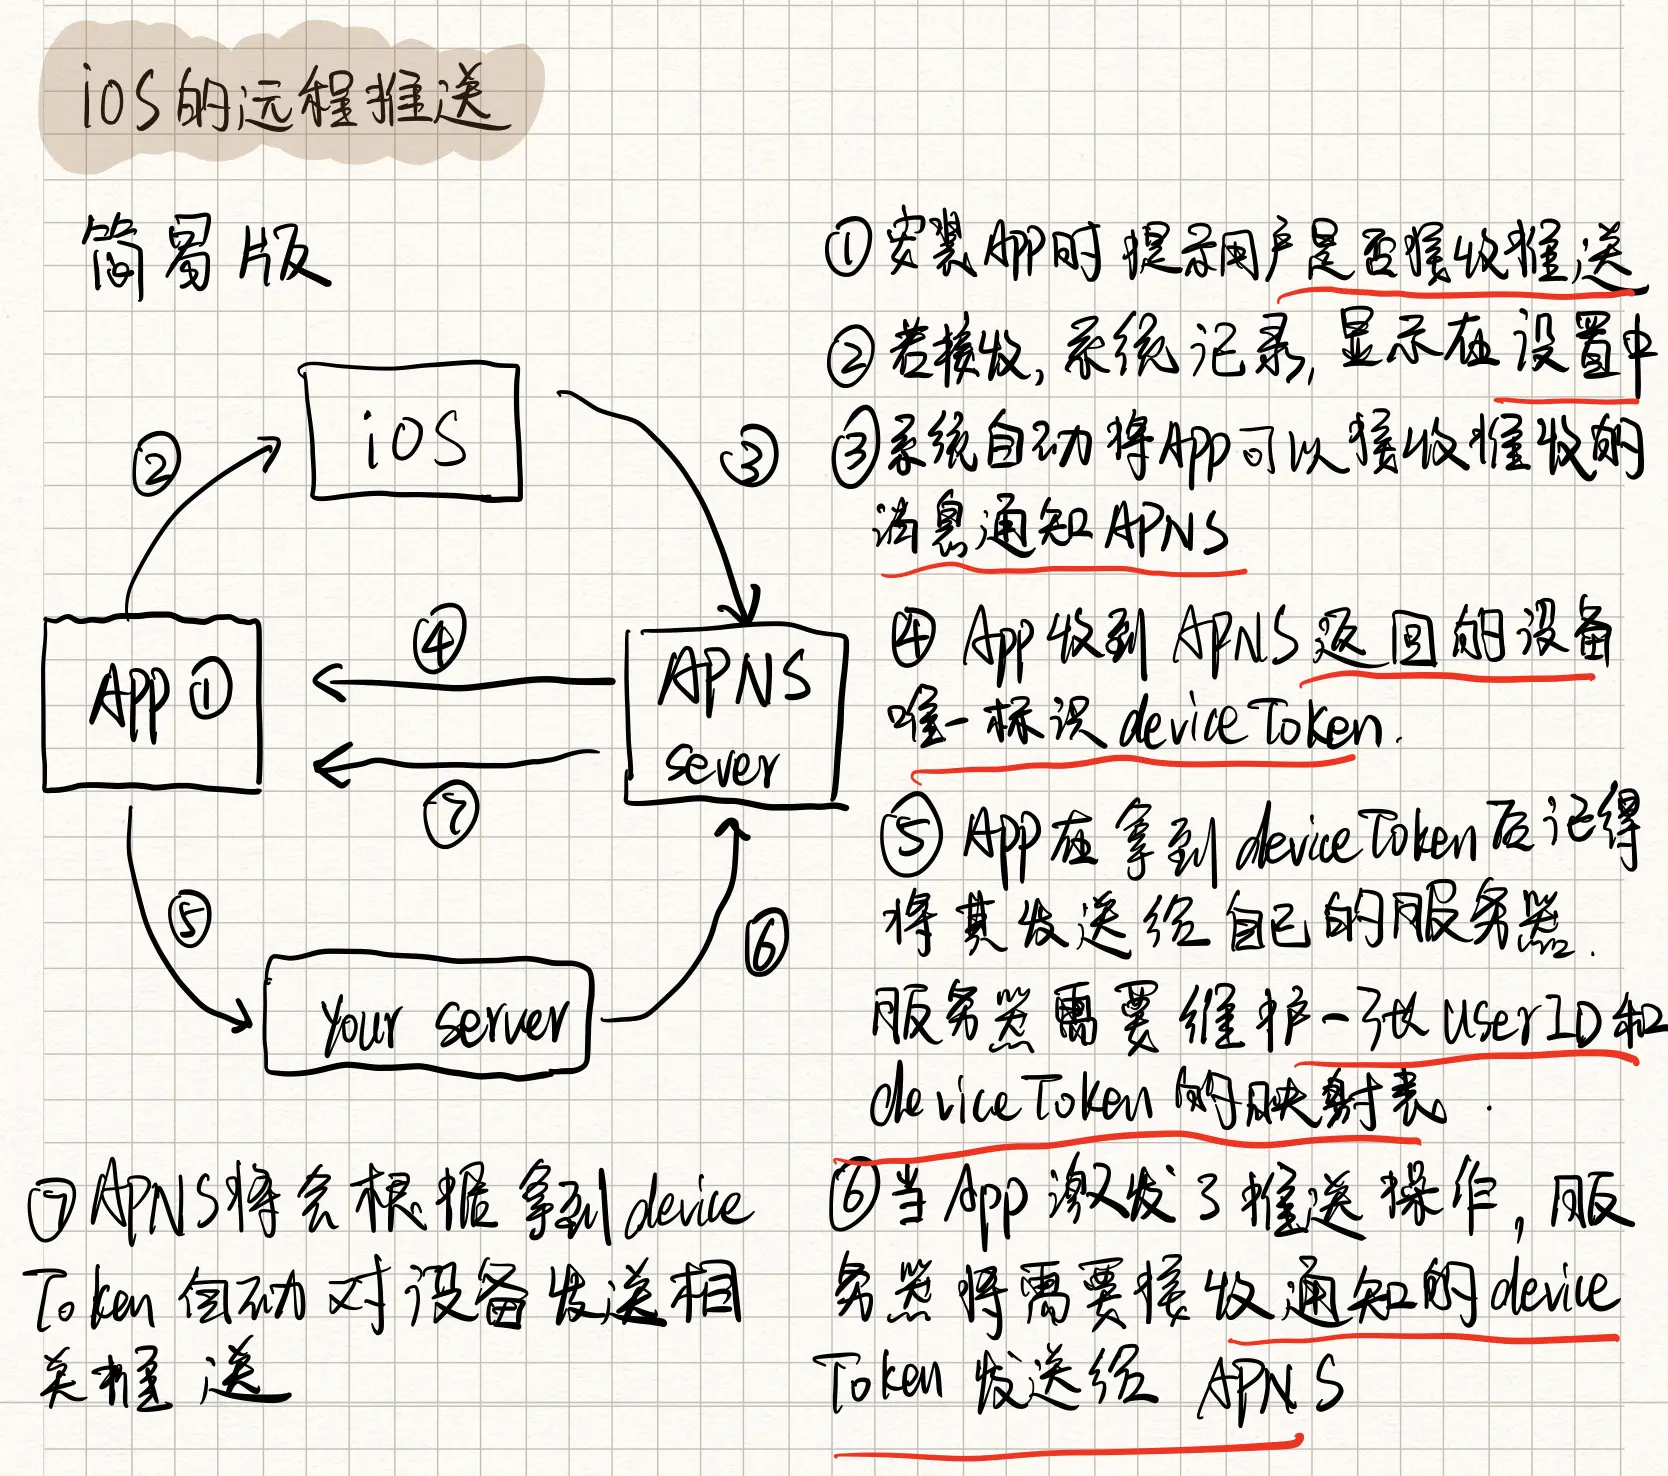 iOS的远程推送
简易版
iOS
②
③
④
App ①
APNS
sever
⑦
⑤
⑥
Your server
①安装App时提示用户是否接收推送
②若接收,系统记录,显示在设置中
③系统自动将App可以接收推收的
消息通知APNS
④ App收到APNS返回的设备
唯一标识deviceToken.
⑤ App在拿到deviceToken后记得
将其发送给自己的服务器.
服务器需要维护一张UserID和
deviceToken的映射表.
⑥当App激发了推送操作,服
务器将需要接收通知的device
Token发送给 APNS
⑦APNS将会根据拿到device
Token自动对设备发送相
关推送